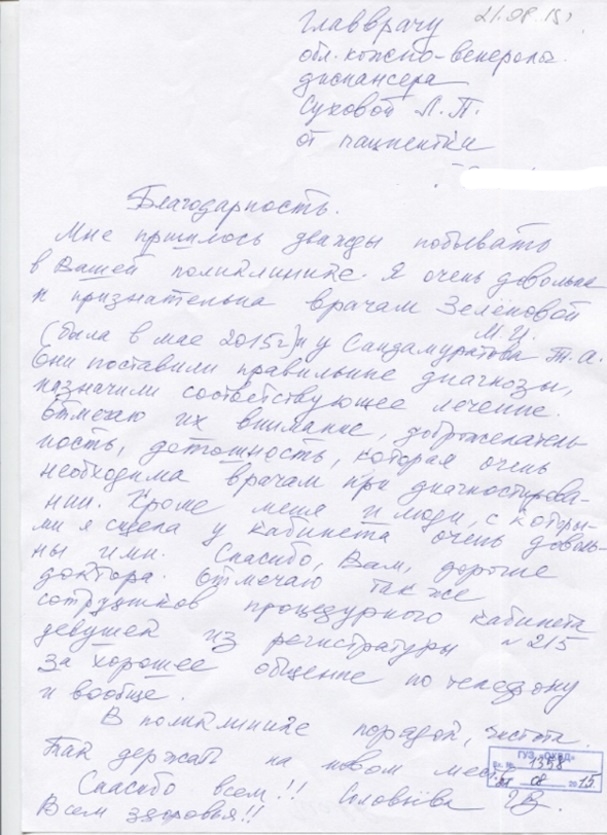 21.08.15г.
Главврачу
обл. кожно-венеролог.
диспансера
Суховой Л.П.
от пациентки
Благодарность.
Мне пришлось дважды побывать
в Вашей поликлинике. Я очень довольна
и признательна врачам Зелёновой
М.И.
(была в мае 2015г) и у Сандамуратова Т.А.
Они поставили правильные диагнозы,
назначили соответствующее лечение.
Отмечаю их внимание, доброжелатель-
ность, дотошность, которая очень
необходима врачам при диагностирова-
нии. Кроме меня и люди, с котры-
ми я сидела у кабинета очень доволь-
ны ими. Спасибо, Вам, дорогие
доктора. Отмечаю так же
сотрудников процедурного кабинета
девушек из регистратуры ~ 215
за хорошее общение по телефону
и вообще.
В поликлинике порядок, чистота.
Так держать на новом месте.
ГУЗ "ОКВД"
Вх. № 1358
21 08 2015
Спасибо всем!! Соловьёва
Всем здоровья!!